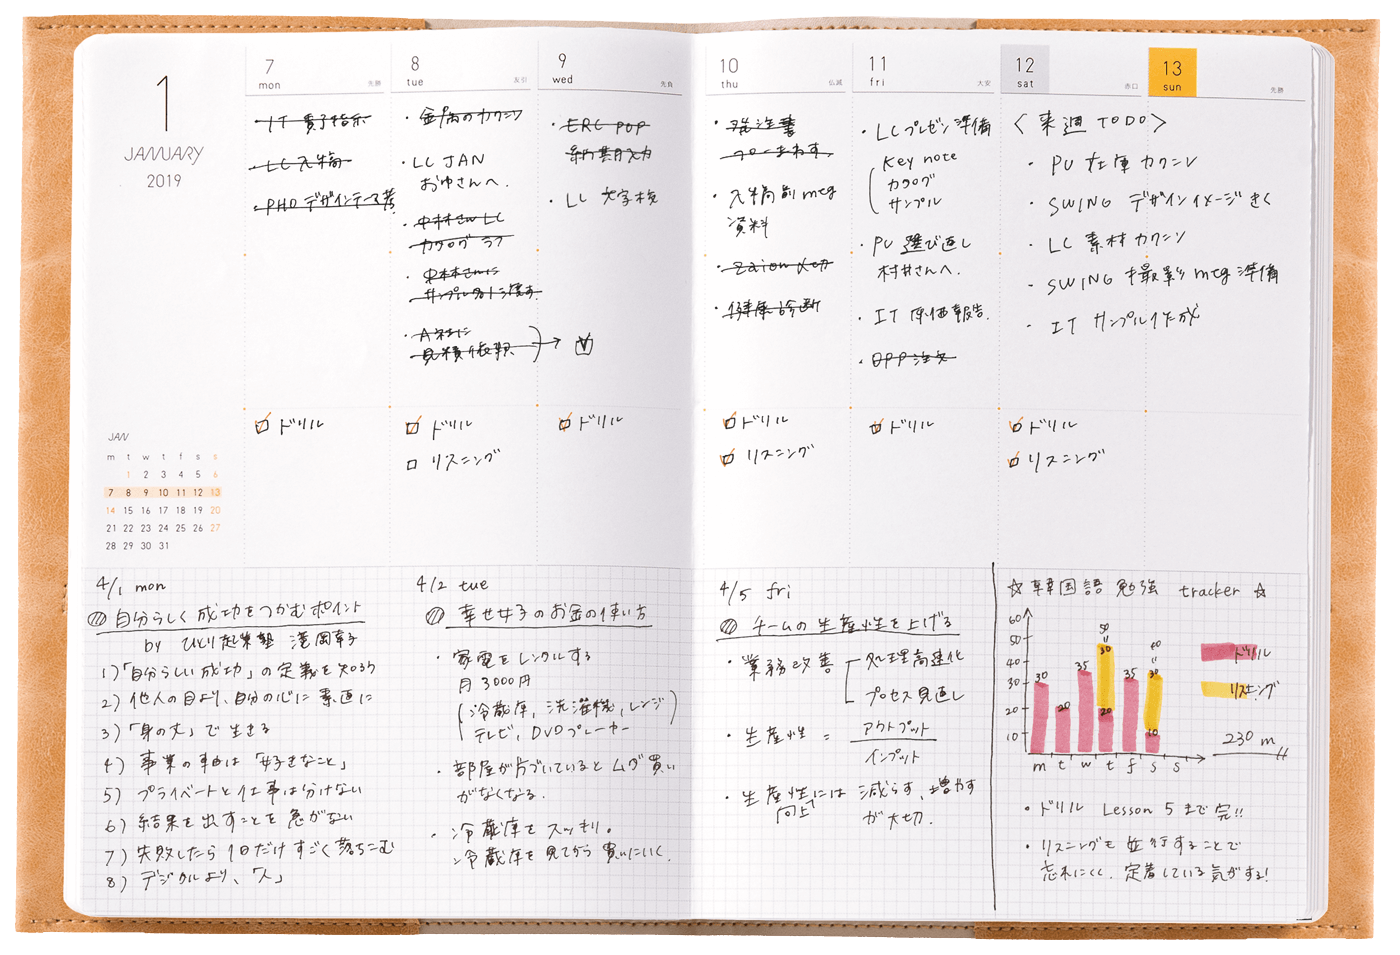 1
JANUARY
2019
7
mon
先勝
IT 貴子指示
LC 入稿
PHD デザインテーマ考
ドリル
8
tue
友引
金属のカクニン
・LC JAN
おゆさんへ.
中林さん LC
カタログ ラフ
・中林さんに
サンプル 渡す.
・A社に
見積依頼.
ドリル
リスニング
9
wed
先負
・ERC POP
納期入力
・LC 文字校
ドリル
10
thu
仏滅
・発注書
フローまわす.
・入稿前 mtg
資料
・健康診断
ドリル
リスニング
11
fri
大安
・LCプレゼン準備
Key note
カタログ
サンプル
・PU 選び直し
村井さんへ.
・IT 原価報告.
・OPP注文
ドリル
12
sat
赤口
13
sun
先勝
〈 来週 TODO 〉
・PU 在庫 カクニン
・SWING デザインイメージ きく
・LC 素材 カクニン
・SWING 撮影 mtg 準備
・IT サンプル作成
ドリル
リスニング
JAN
m t w t f s s
1 2 3 4 5 6
7 8 9 10 11 12 13
14 15 16 17 18 19 20
21 22 23 24 25 26 27
28 29 30 31
4/1 mon
自分らしく 成功をつかむポイント
by ひとり起業塾 滝岡幸子
1)「自分らしい成功」の定義を知ろう
2) 他人の目より、自分の心に素直に
3)「身の丈」で生きる
4) 事業の軸は「好きなこと」
5) プライベートと仕事は分けない
6) 結果を出すことを急がない
7) 失敗したら 1日だけ すごく落ちこむ
8) デジタルより、「人」
4/2 tue
幸せ女子のお金の使い方
・家電をレンタルする
月 3000円
(冷蔵庫, 洗濯機, レンジ
テレビ, DVDプレーヤー)
・部屋が片づいていると ムダ買い
がなくなる.
・冷蔵庫をスッキリ。
冷蔵庫を見てから 買いにいく.
4/5 fri
チームの生産性を上げる
・業務改善
処理高速化
プロセス見直し
・生産性 =
アウトプット
インプット
・生産性には 減らす、増やす
向上
が大切.
☆ 韓国語 勉強 tracker ☆
60
50
40
30
20
10
30
20
35
50
"
30
20
35
40
"
30
10
m t w t f s s
ドリル
リスニング
230 m
・ドリル Lesson 5 まで 完!!
・リスニングも 並行することで
忘れにくく、定着している気がする!